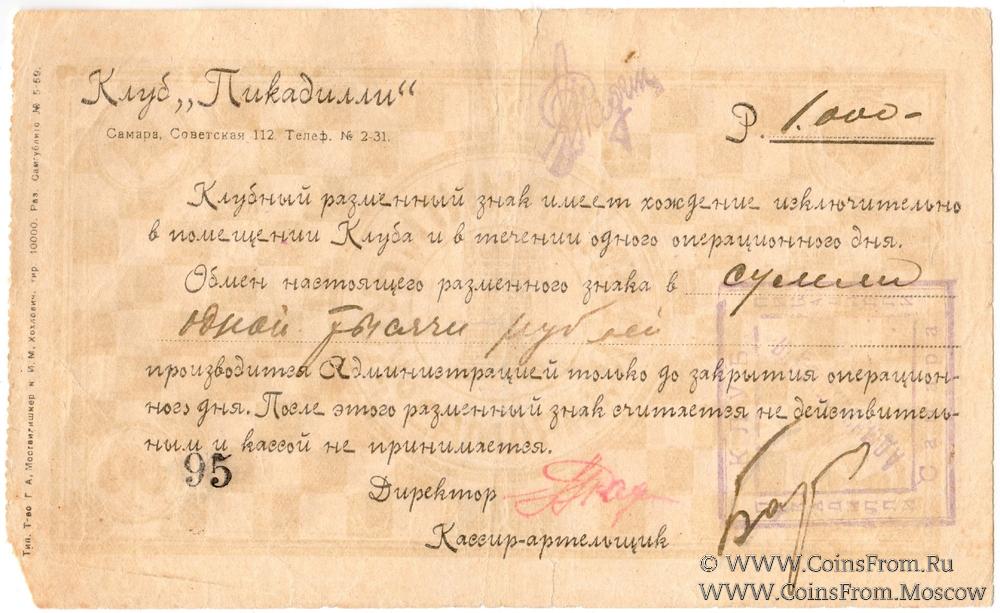 Клуб „Пикадилли“
Самара, Советская 112. Телеф. № 2-31.
Р. 1.000-
Клубный разменный знак имеет хождение исключительно
в помещении Клуба и в течении одного операционного дня.
Обмен настоящего разменного знака в сумме
одной тысячи рублей
производится Администрацией только до закрытия операцион-
ного дня. После этого разменный знак считается не действитель-
ным и кассой не принимается.
95
Директор
Кассир-артельщик
Тип. Т-во Г. А. Мосгвилишкер и И. М. Хохлович. тир. 10000. Раз. Самгублито № 5-59.
КЛУБ
Самара
© WWW.CoinsFrom.Ru
WWW.CoinsFrom.Moscow